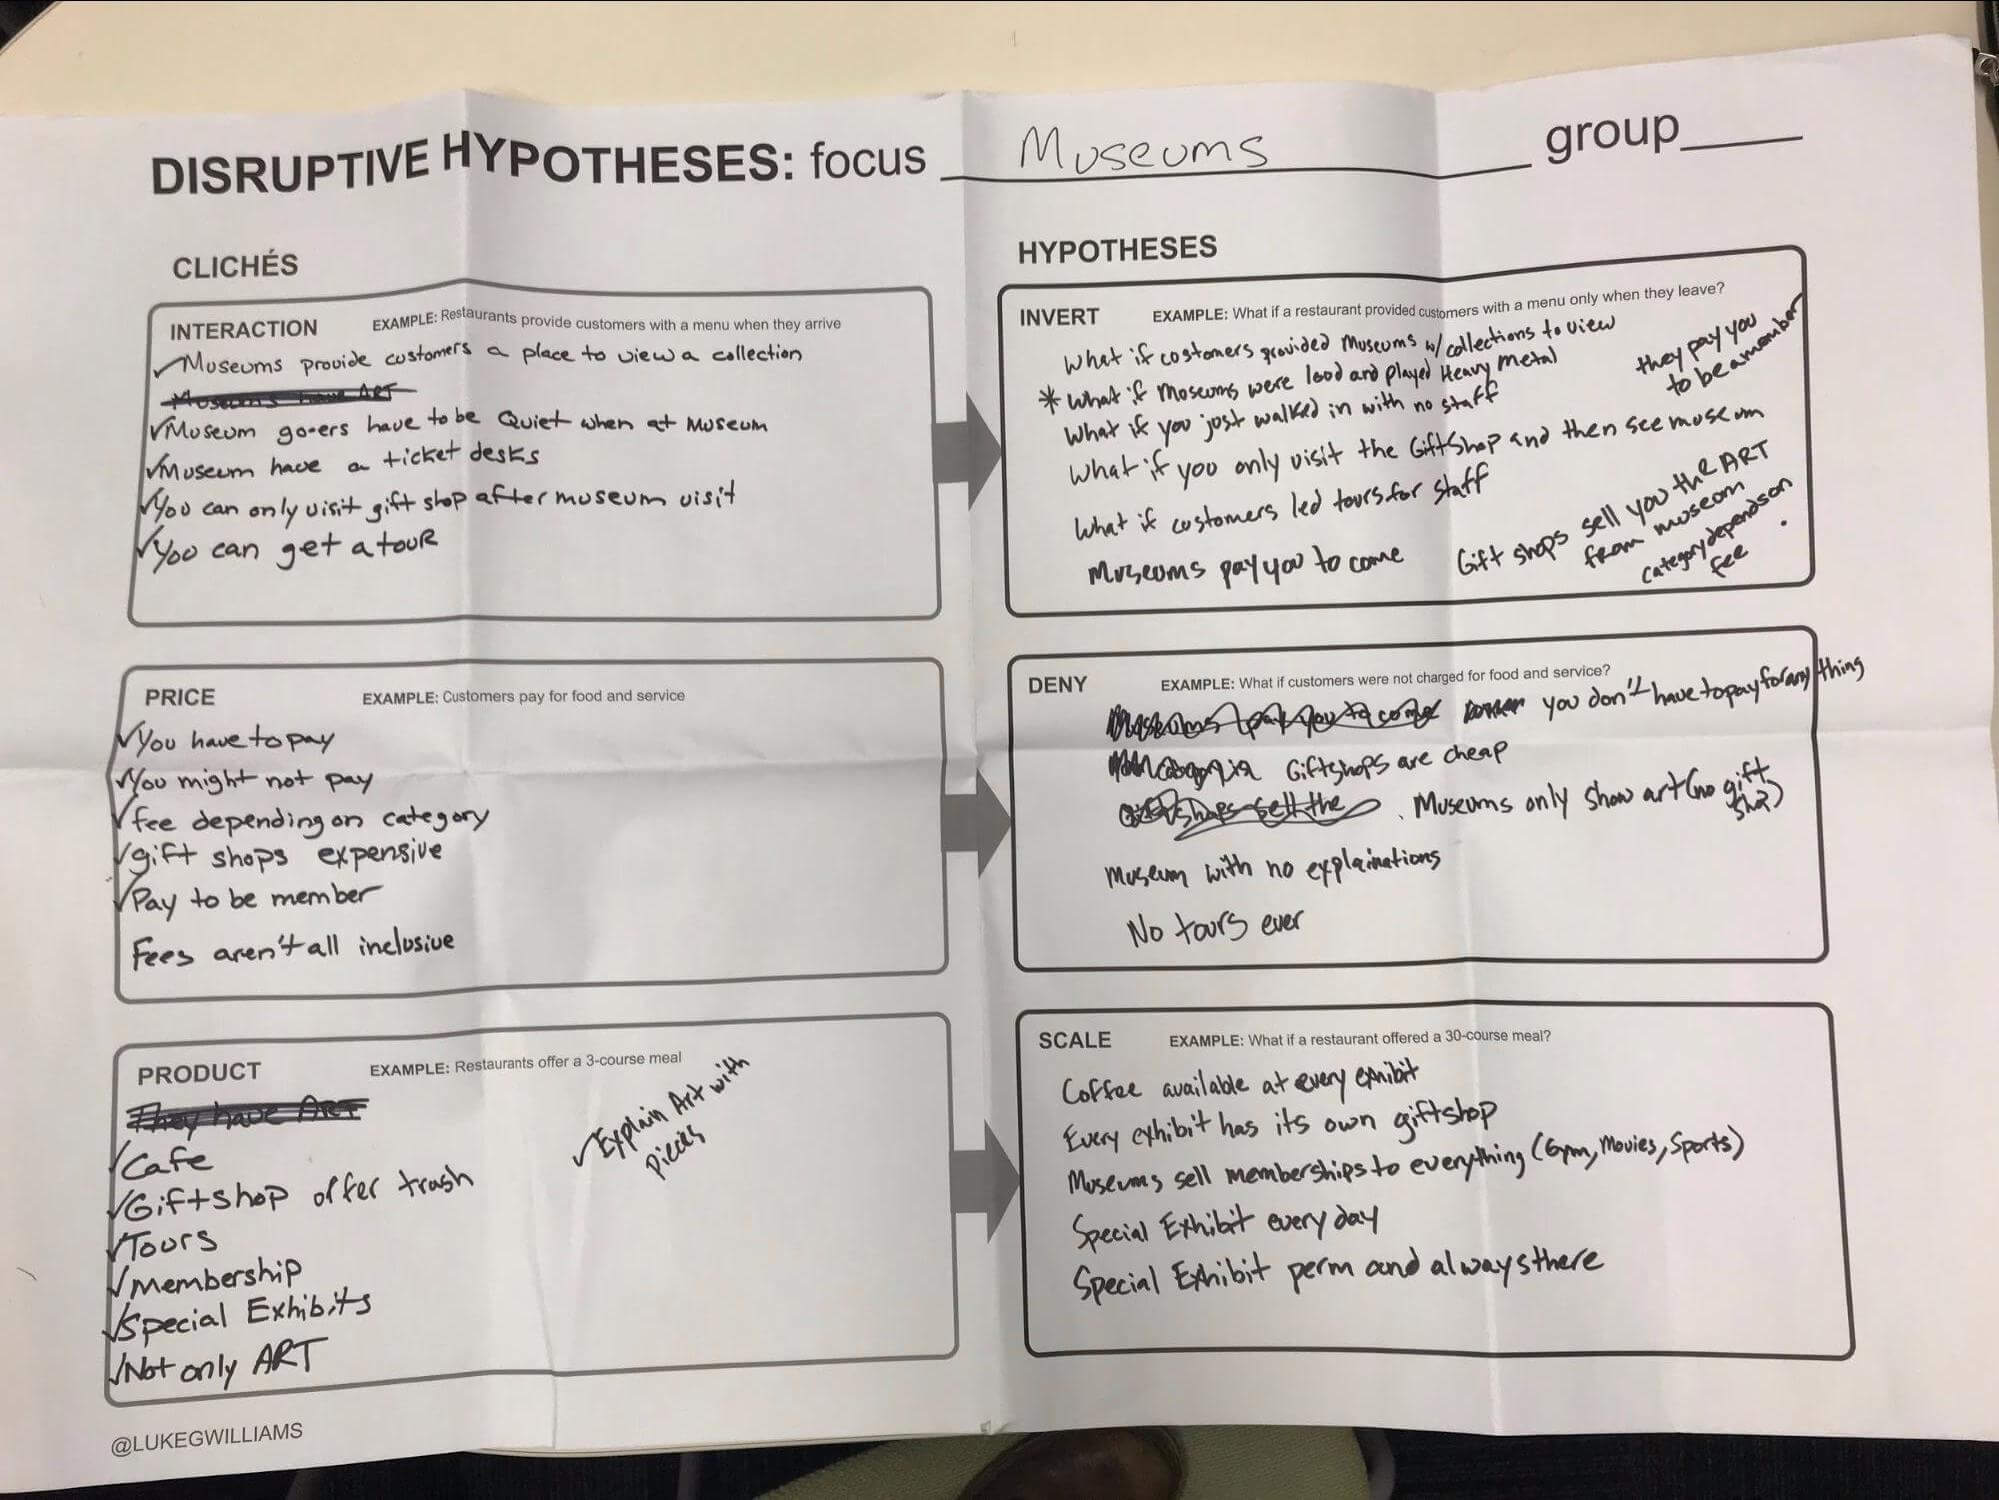 DISRUPTIVE HYPOTHESES: focus Museums group
CLICHÉS
INTERACTION EXAMPLE: Restaurants provide customers with a menu when they arrive
✓Museums provide customers a place to view a collection
Museums have ART
✓Museum goers have to be Quiet when at Museum
✓Museum have a ticket desks
✓You can only visit gift shop after museum visit
✓You can get a tour
PRICE EXAMPLE: Customers pay for food and service
✓You have to pay
✓You might not pay
✓fee depending on category
✓gift shops expensive
✓Pay to be member
Fees aren't all inclusive
PRODUCT EXAMPLE: Restaurants offer a 3-course meal
They have ART
✓Cafe
✓Giftshop offer trash
✓Tours
✓Membership
✓Special Exhibits
✓Not only ART
✓Explain Art with
pieces
@LUKEGWILLIAMS
HYPOTHESES
INVERT EXAMPLE: What if a restaurant provided customers with a menu only when they leave?
What if costomers provided Museums w/ collections to view
* What if Moseums were loud and played Heavy Metal
What if you just walked in with no staff
What if you only visit the GiftShop and then see museum
What if customers led tours for staff
Museums pay you to come
they pay you
to be a member
Gift shops sell you the ART
from museom
category depends on
fee
DENY EXAMPLE: What if customers were not charged for food and service?
Museums pay you to come you don't have to pay for anything
Giftshops are cheap
Gift shops sell the Museums only show art (no gift
shop)
Museum with no explainations
No tours ever
SCALE EXAMPLE: What if a restaurant offered a 30-course meal?
Coffee available at every exhibit
Every exhibit has its own giftshop
Museums sell memberships to everything (Gym, Movies, Sports)
Special Exhibit every day
Special Exhibit perm and always there